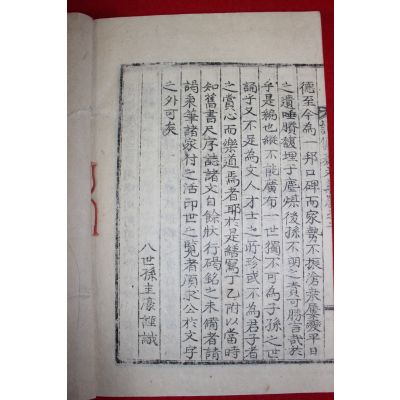 德至今為一邦口碑而家勢不振滄桑屢變平日
之遺唾賸馥埋于塵煤後孫不明之責可勝言哉於
乎是編也縱不能廣布一世獨不可為子孫之世
誦乎又不是為文人才士之所珍或不為君子者
之賞心而樂道焉者耶於是繕寫丁乙附以當時
知舊書尺序誌諸文自餘狀行碣銘之未備者請
謁秉筆諸家付之活印世之覽者願求公於文字
之外可矣
八世孫圭 謹識